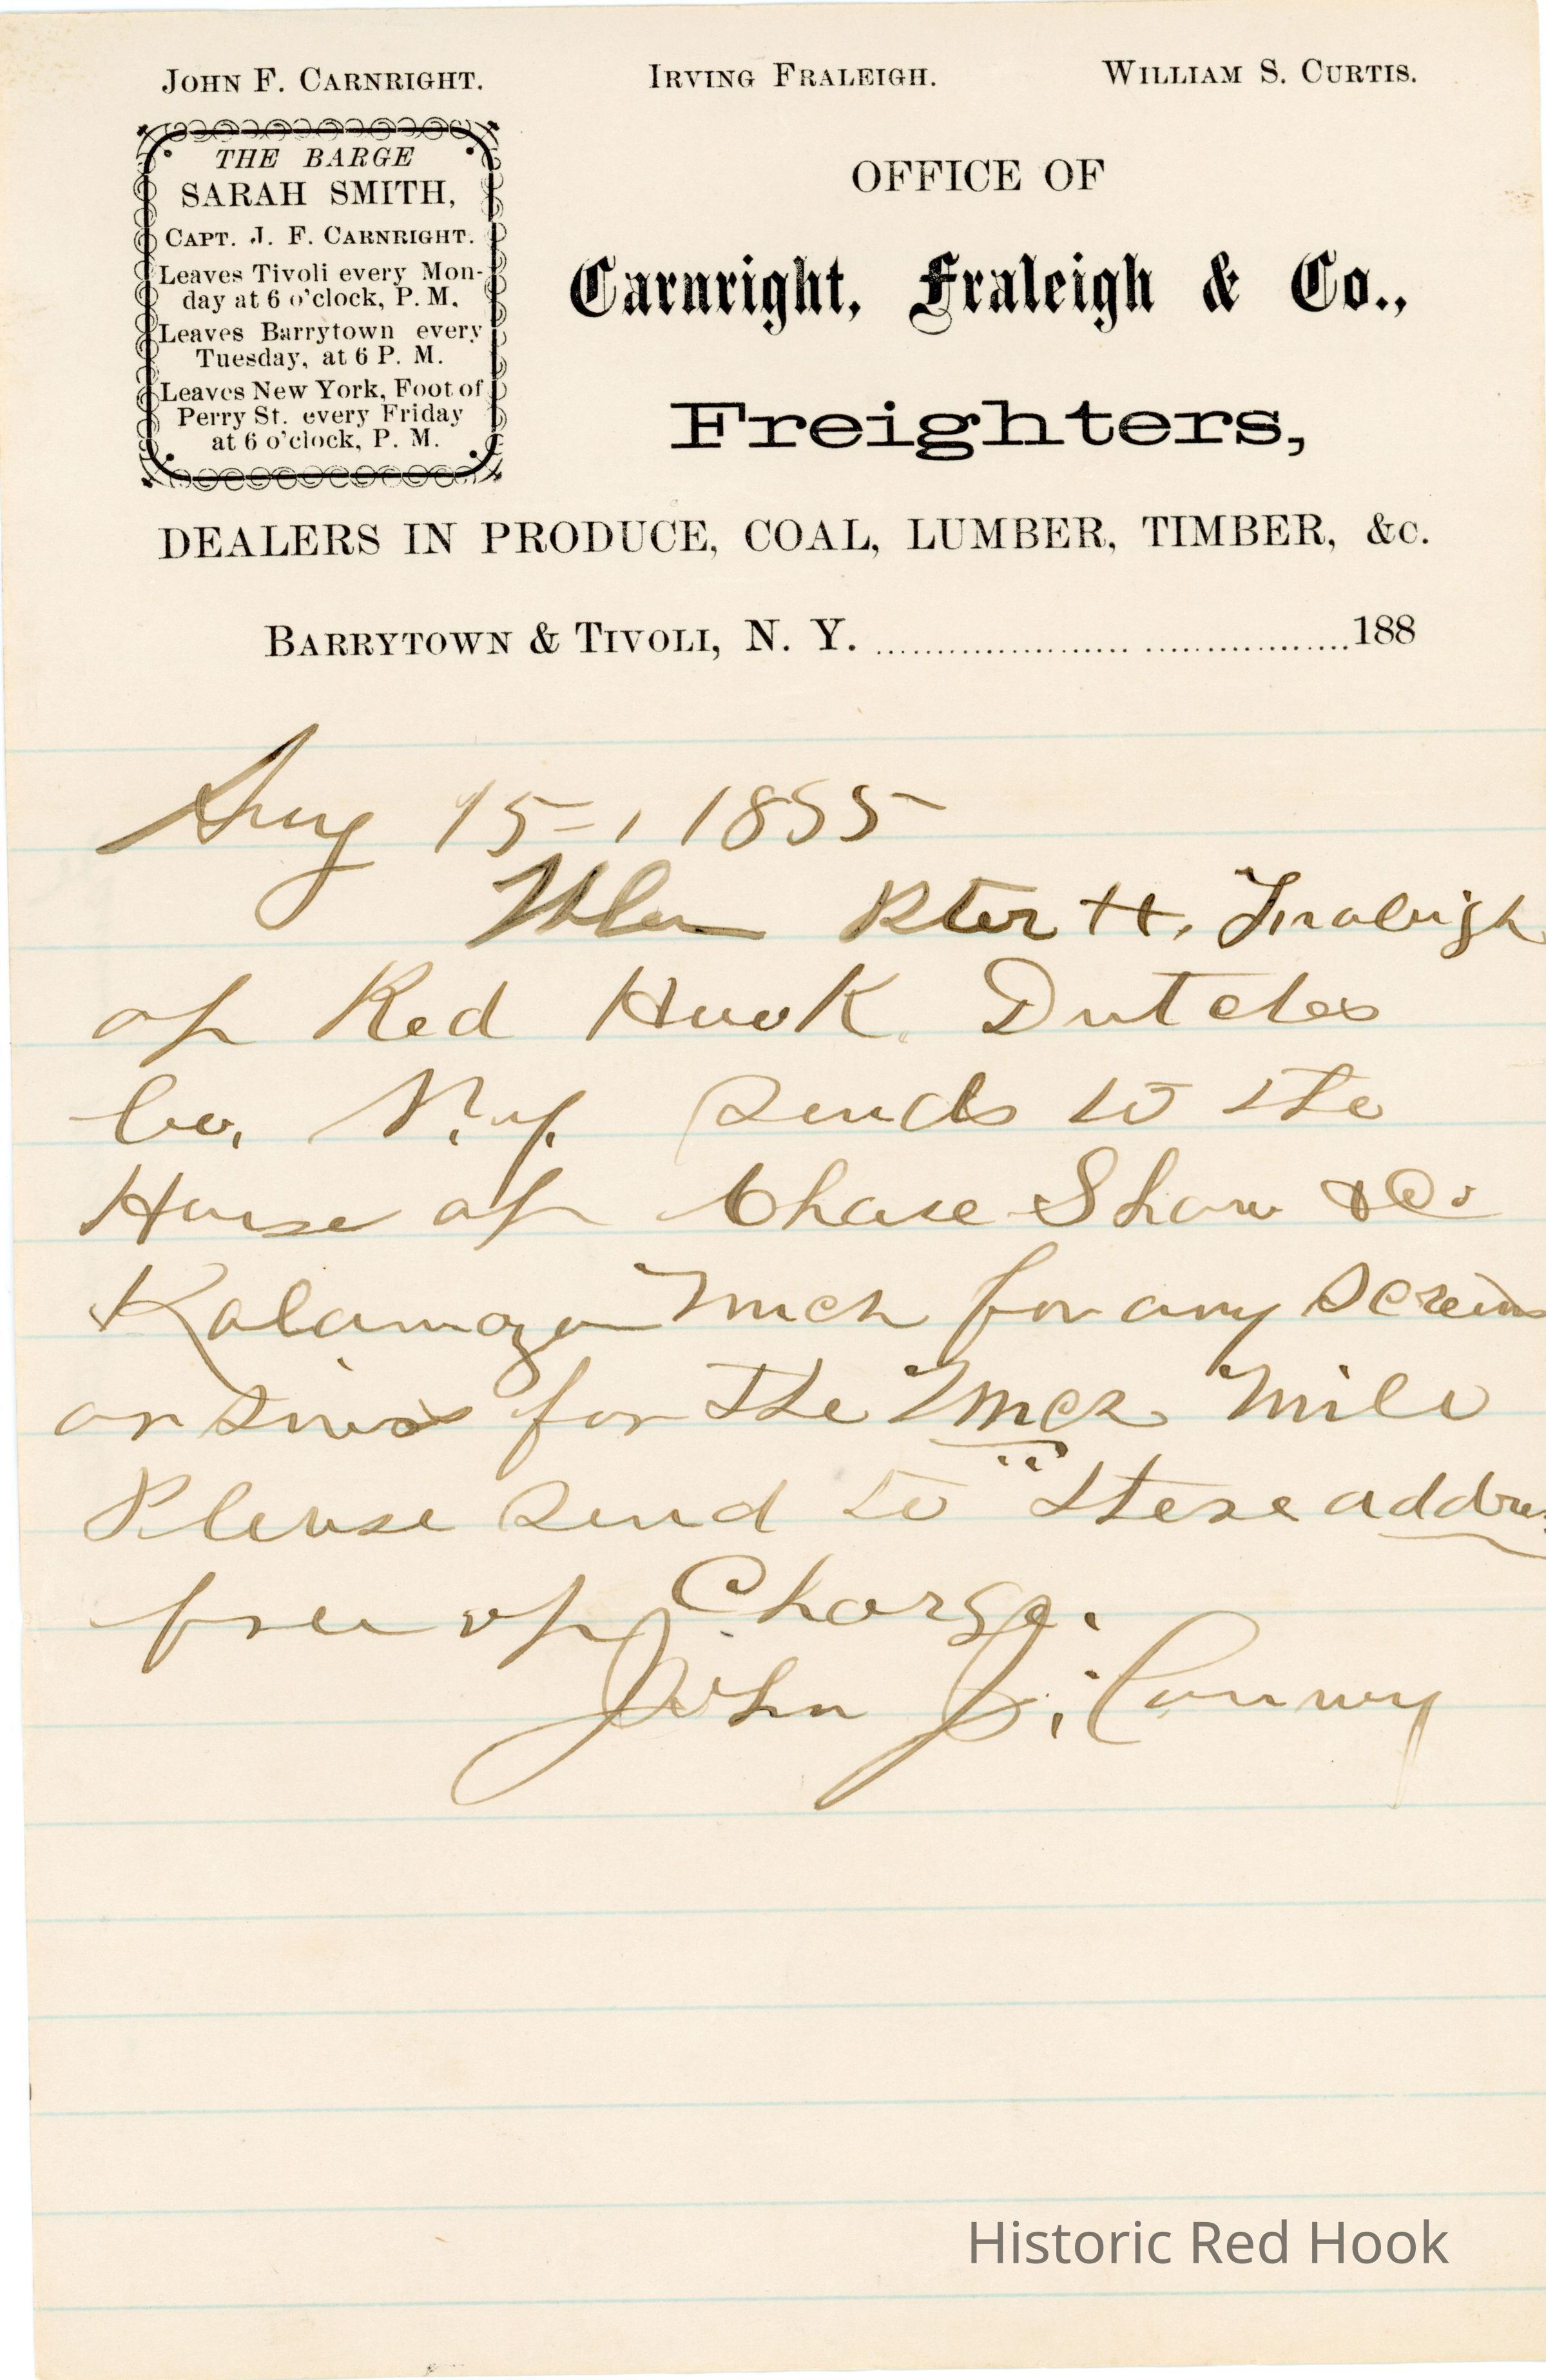 JOHN F. CARNRIGHT. IRVING FRALEIGH. WILLIAM S. CURTIS.
THE BARGE
SARAH SMITH,
CAPT. J. F. CARNRIGHT.
Leaves Tivoli every Mon-
day at 6 o'clock, P. M.
Leaves Barrytown every
Tuesday, at 6 P. M.
Leaves New York, Foot of
Perry St. every Friday
at 6 o'clock, P. M.
OFFICE OF
Carnright, Fraleigh & Co.,
Freighters,
DEALERS IN PRODUCE, COAL, LUMBER, TIMBER, &c.
BARRYTOWN & TIVOLI, N. Y. 188
Aug 15, 1885
When Peter H. Fraleigh
of Red Hook Dutches
Co. N.y. sends to the
House of Chase Shaw & Co.
Kalamazoo Mich for any
or for the Mill
Please send to these address
free of Charge.
John J. Conwy
Historic Red Hook